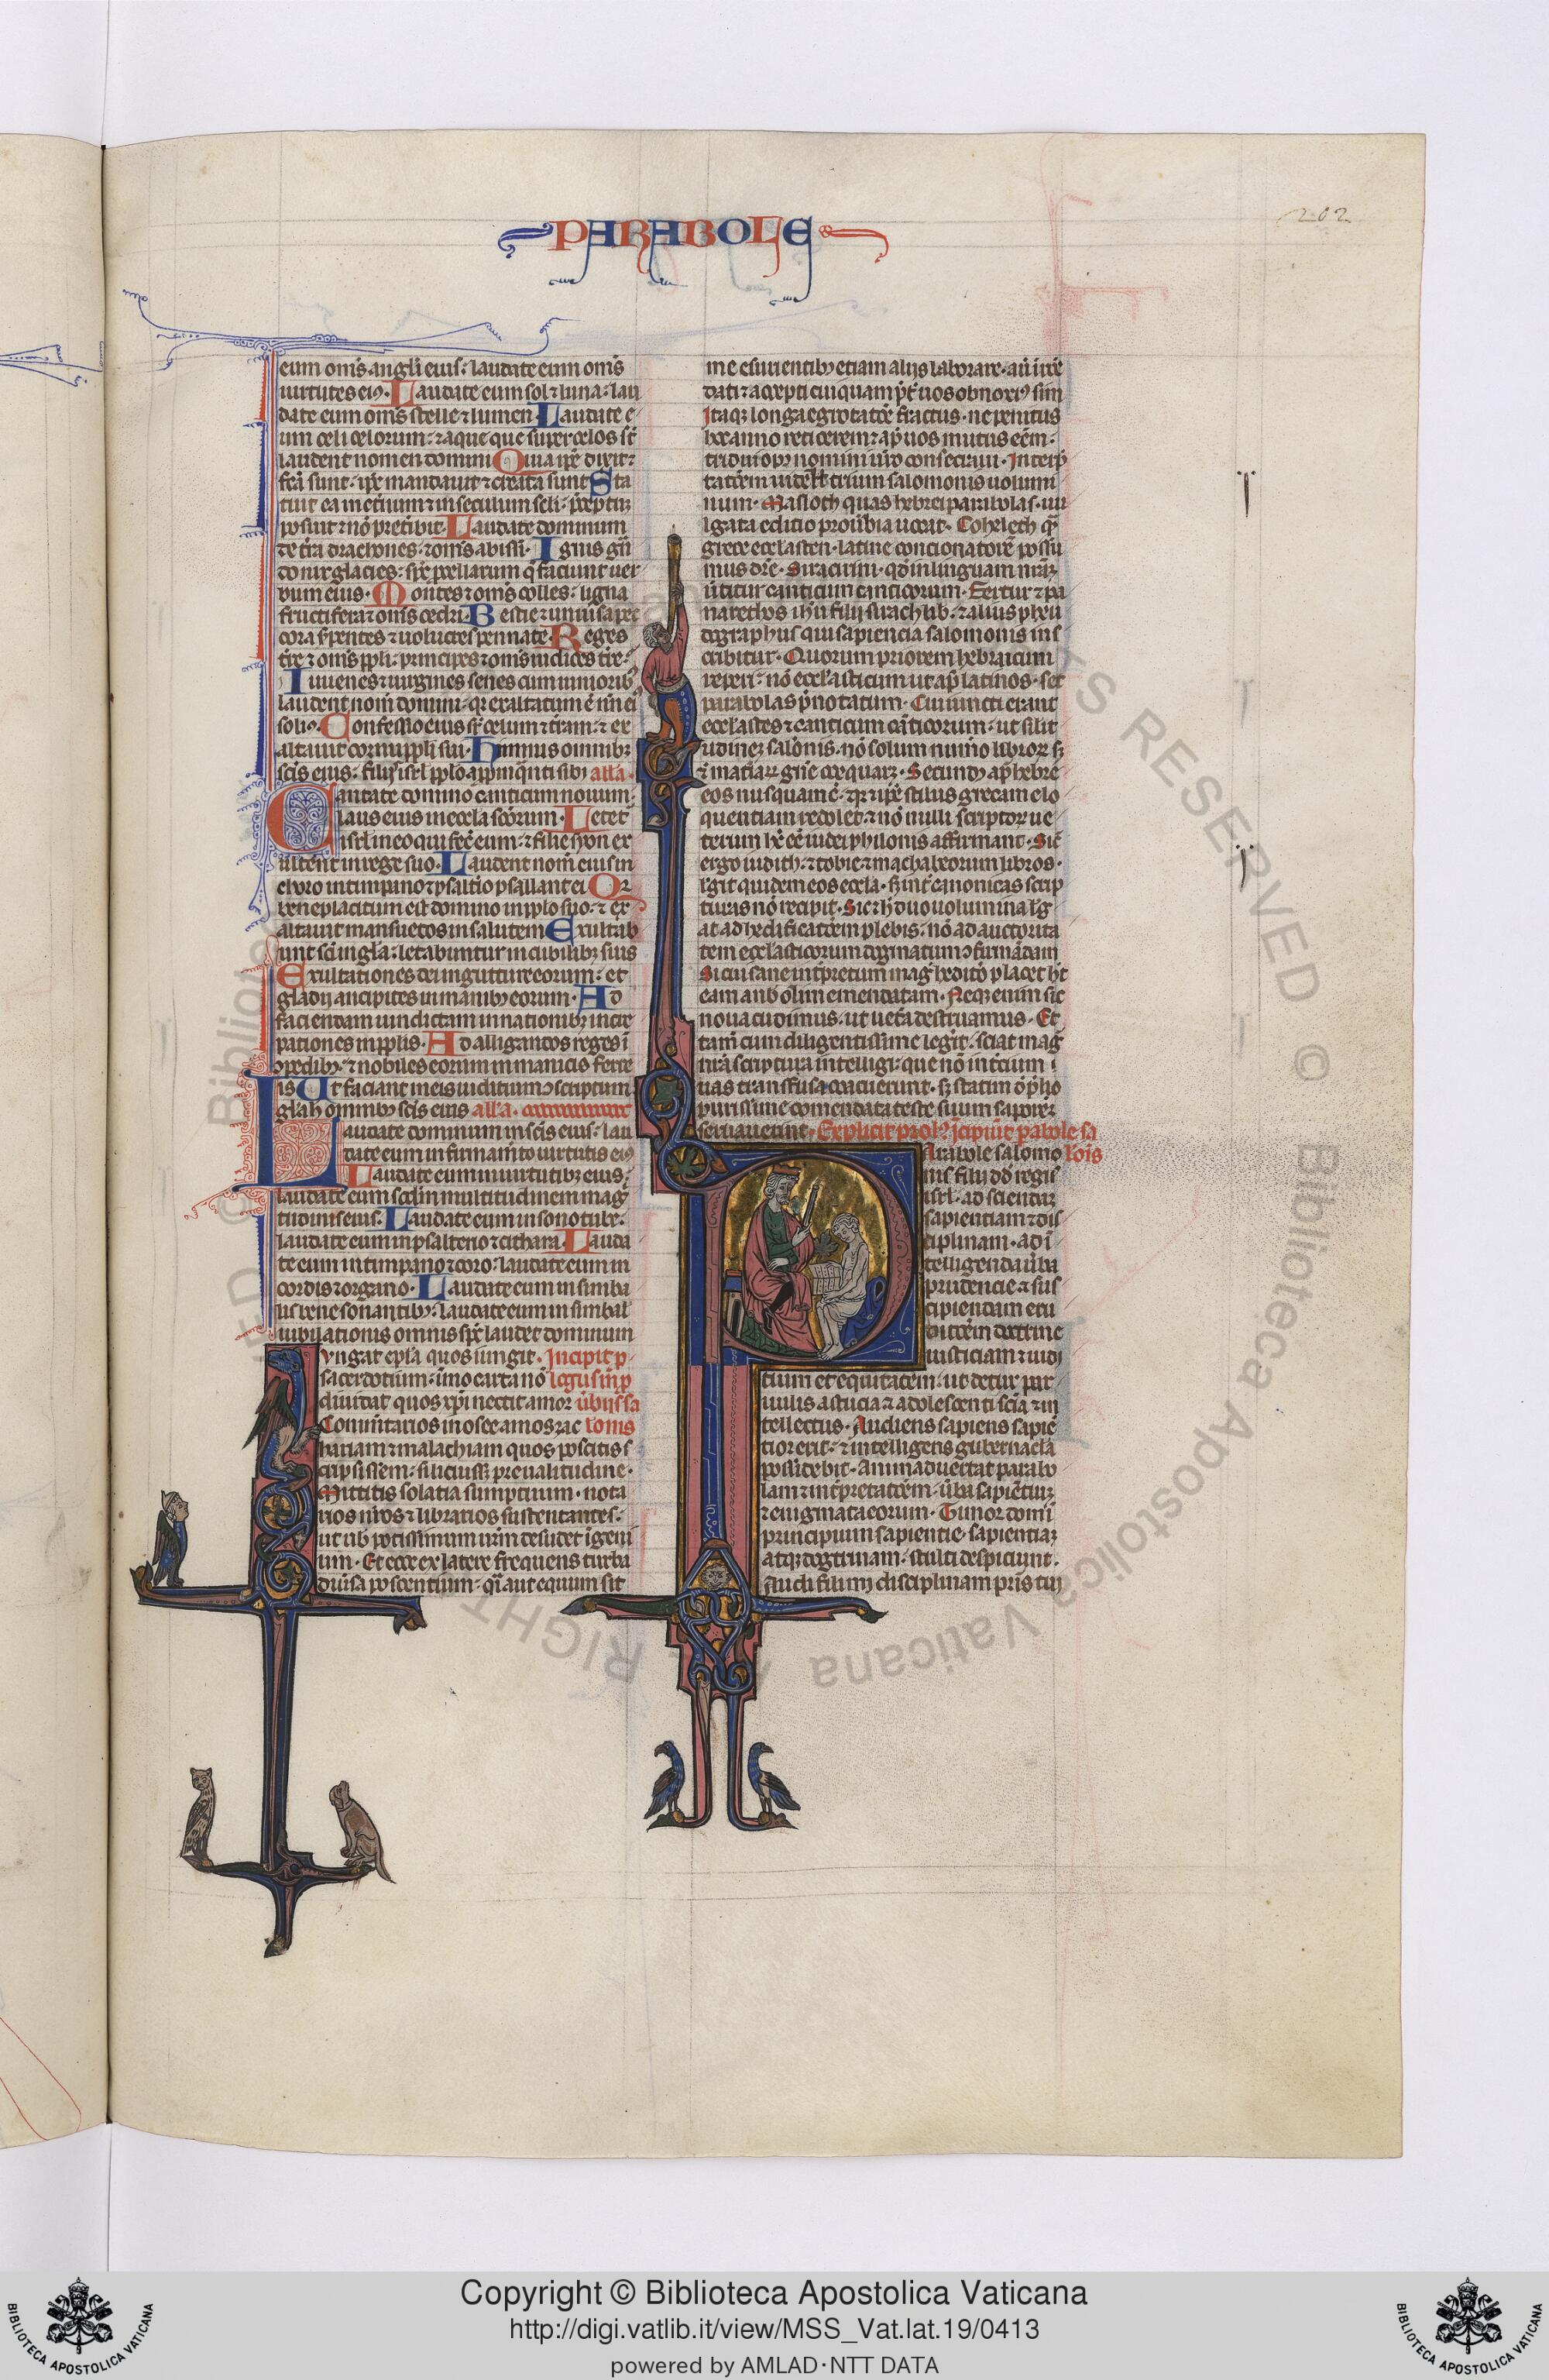 PARABOLE
202
eum oms angli eius: laudate eum oms
uirtutes eiꝰ. Laudate eum sol ⁊ luna: lau
date eum oms stelle ⁊ lumen. Laudate e
um celi celorum: ⁊ aque que super celos st
laudent nomen domini Quia ipse dixit ⁊
fca sunt: ipse mandauit ⁊ creata sunt Sta
tuit ea in eternum ⁊ in seculum seli: preptum
posuit ⁊ nō preribit. Laudate dominum
de tra dracones: ⁊ oms abissi. Ignis gn
do nix glacies: spc pcellarum q̄ faciunt uer
bum eius. Montes ⁊ oms colles: ligna
fructifera ⁊ oms cedri. Bestie ⁊ uniūsa pec
cora spentes ⁊ uolucres pennate Reges
tre ⁊ oms ppli: principes ⁊ oms iudices tre.
Iuuenes ⁊ uirgines senes cum iuniorib
laudent nom domini: qr exaltatum ē nm ei
soliꝰ. Confessio eius sr celum ⁊ tram: ⁊ ex
altauit cornu ppli sui. Himnus omnibꝫ
scis eius: filijs isrl pplo appinqnti sibi alla.
Cantate domino canticum nouum:
laus eius in eccla scorum. Letet
isrl in eo qui fec eum: ⁊ filie syon ex
ultent in rege suo. Laudent nom eius in
choro in timpano ⁊ psaltio psallant ei Qr
beneplacitum est domino in pplo suo: ⁊ ex
altauit mansuetos in salutem Exultab
unt sci in gla: letabuntur in cubilibꝫ suis
Exultationes dei in gutture eorum: et
gladij ancipites in manibꝫ eorum. Ad
faciendam uindictam in nationibꝫ incre
pationes in pplis. Ad alligandos reges ī
pedibꝫ: ⁊ nobiles eorum in manicis ferre
is Ut faciant in eis iudicium ↄscriptum
gla h omnibꝫ scis eius alla.
Laudate dominum in scis eius: lau
date eum in firmamto uirtutis eiꝰ
Laudate eum in uirtutibꝫ eius:
laudate eum scdm multitudinem mag
tudinis eius. Laudate eum in sono tube:
laudate eum in psalterio ⁊ cithara. Lauda
te eum in timpano ⁊ coro: laudate eum in
cordis ⁊ organo. Laudate eum in simba
lis bene sonantibꝫ: laudate eum in simbal
iubilationis omnis spc laudet dominum
Vngat epla quos iungit. Incipit p
sacerdotium: īmo carta nō logus in p
diuidat quos xpi nectit amor ūbijs sa
Commtarios in osee amos zac lomis
hariam ⁊ malachiam quos poscitis s
cripsissem: si licuiss pre ualitudine.
Mittitis solatia sumptuum. nota
rios nros ⁊ librarios sustentantes.
ut ub potissimum nrm desudet igeni
um. Et ecce ex latere frequens turba
diuisa poscentium: qi aut equum sit
me esurientibꝫ etiam alijs laborare. aut ī rōe
dati ⁊ accepti cuiquam pt uos obnoxiꝰ sim
Itaqꝫ longa egrotatōe fractus. ne penitus
hoc anno reticerem ⁊ ap uos mutus eem.
tridui opꝰ nomini uro consecraui. Interp
tatōem uidelicꝫ trium salomonis uolumi
num. Masloth quas hebrei parabolas. uu
lgata editio prouerbia uocat. Cohelech q̄
grece ecclasten. latine concionatorē possu
mus dre. Siracirim. qd in linguam nram
ūtitur canticum canticorum. Fertur ⁊ pa
narethos ihu filij sirach lib: ⁊ alius pseu
dographus qui sapiencia salomonis ins
cribitur. Quorum priorem hebraicum
reperi: nō ecclasticum ut ap latinos. sed
parabolas pnotatum. Cui iuncti erant
ecclastes ⁊ canticum canticorum: ut silit
udinem salonis. nō solum numo libroꝝ sꝫ
⁊ matiaꝝ gne coequaꝝ. Secundꝰ ap hebre
eos nusquam ē. qr ⁊ ipse stilus grecam elo
quentiam redolet: ⁊ nō nulli scriptoꝝ ue
terum hc ee iudei philonis affirmant. Sic
ergo iudith. ⁊ tobie ⁊ machabeorum libros.
legit quidem eos eccla. sꝫ int canonicas scrip
turas nō recipit. Sic ⁊ h duo uolumina leg
at ad hedificatōem plebis: nō ad auctorita
tem ecclasticorum dogmatum ↄfirmādam
Si cui sane intpretum mag hedito placet ht
eam a nb olim emendatam. Neqꝫ enim sic
noua cudimus. ut uetā destruamus. Et
tam cum diligentissime legit. sciat mag
nrā scriptura intelligi: que nō in tcium
uas transfusa coacuerunt. sꝫ statim ō plo
purissime comendata teste suum saporem
seruauerint. Explicit prolꝰ icipiūt parabole sa
Parabole salomo lōis
nis filij dd regis
isrl. ad sciendam
sapientiam ⁊ dis
ciplinam. ad ī
telligenda ūba
prudencie ⁊ sus
cipiendam eru
ditōem doctrine
iusticiam ⁊ iudi
tium et equitatem: ut detur par
uulis astucia ⁊ adolescenti scia ⁊ in
tellectus. Audiens sapiens sapiē
tior erit: ⁊ intelligens gubernacla
possidebit. Animaduertat parabo
lam ⁊ intpretatōem. ūba sapientium
⁊ enigmata eorum. Timor domi
principium sapientie. sapientiam
atqꝫ doctrinam: stulti despiciunt.
Audi fili mi disciplinam pris tui
Copyright © Biblioteca Apostolica Vaticana
http://digi.vatlib.it/view/MSS_Vat.lat.19/0413
powered by AMLAD·NTT DATA
BIBLIOTECA APOSTOLICA VATICANA
BIBLIOTECA APOSTOLICA VATICANA